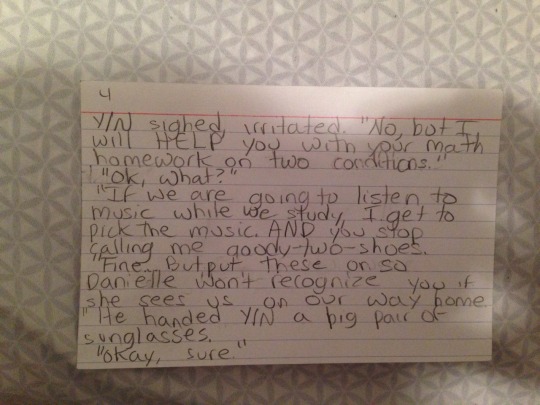 4
Y/N sighed, irritated. "No, but I
will HELP you with your math
homework on two conditions."
"Ok, what?"
"If we are going to listen to
music while we study, I get to
pick the music. AND you stop
calling me goody-two-shoes.
"Fine. But put these on so
Danielle won't recognize you if
she sees us on our way home
" He handed Y/N a big pair of
sunglasses.
"Okay, sure"